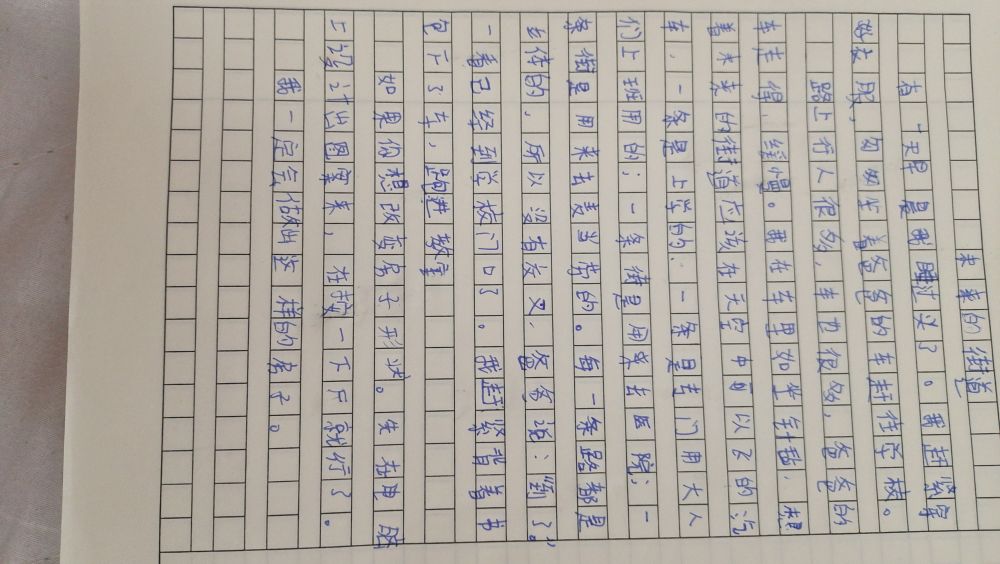 未来的街道
有一天早晨我睡过头了。我赶紧穿
好衣服,匆匆坐着爸爸的车赶往学校。
路上行人很多,车也很多,爸爸的
车走得,缓慢。我在车里如坐针毡.想
着未来的街道应该在天空中可以飞的汽
车.一条是上学的:一条是专门用大人
们上班用的;一条街是用来去医院;一
条街是用来去麦当劳的。每一条路都是
体的,所以没有分叉.爸爸说:到了。”
一看已经到学校门口了.我赶紧背着书
包下了车,跑进教室
如果你想改变房子形状。先在电脑
上设计出图案来,在按一下就行了.
我一定会做出这样的房子。